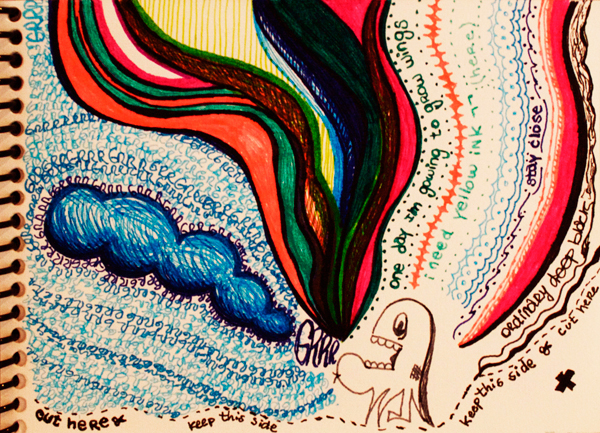 one day im gowing to grow wings
i need yellow ink → (here)
stay close
ordinary deep black
Grrr
cut here
keep this side
keep this side &
cut here